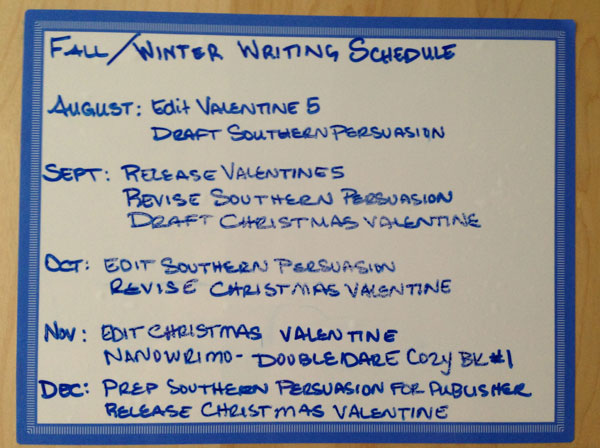 FALL/WINTER WRITING SCHEDULE
AUGUST: Edit VALENTINE 5
DRAFT SOUTHERN PERSUASION
SEPT: RELEASE VALENTINE 5
REVISE SOUTHERN PERSUASION
DRAFT CHRISTMAS VALENTINE
OCT: EDIT SOUTHERN PERSUASION
REVISE CHRISTMAS VALENTINE
NOV: EDIT CHRISTMAS VALENTINE
NANOWRIMO- DOUBLE DARE COZY BK #1
DEC: PREP SOUTHERN PERSUASION FOR PUBLISHER
RELEASE CHRISTMAS VALENTINE